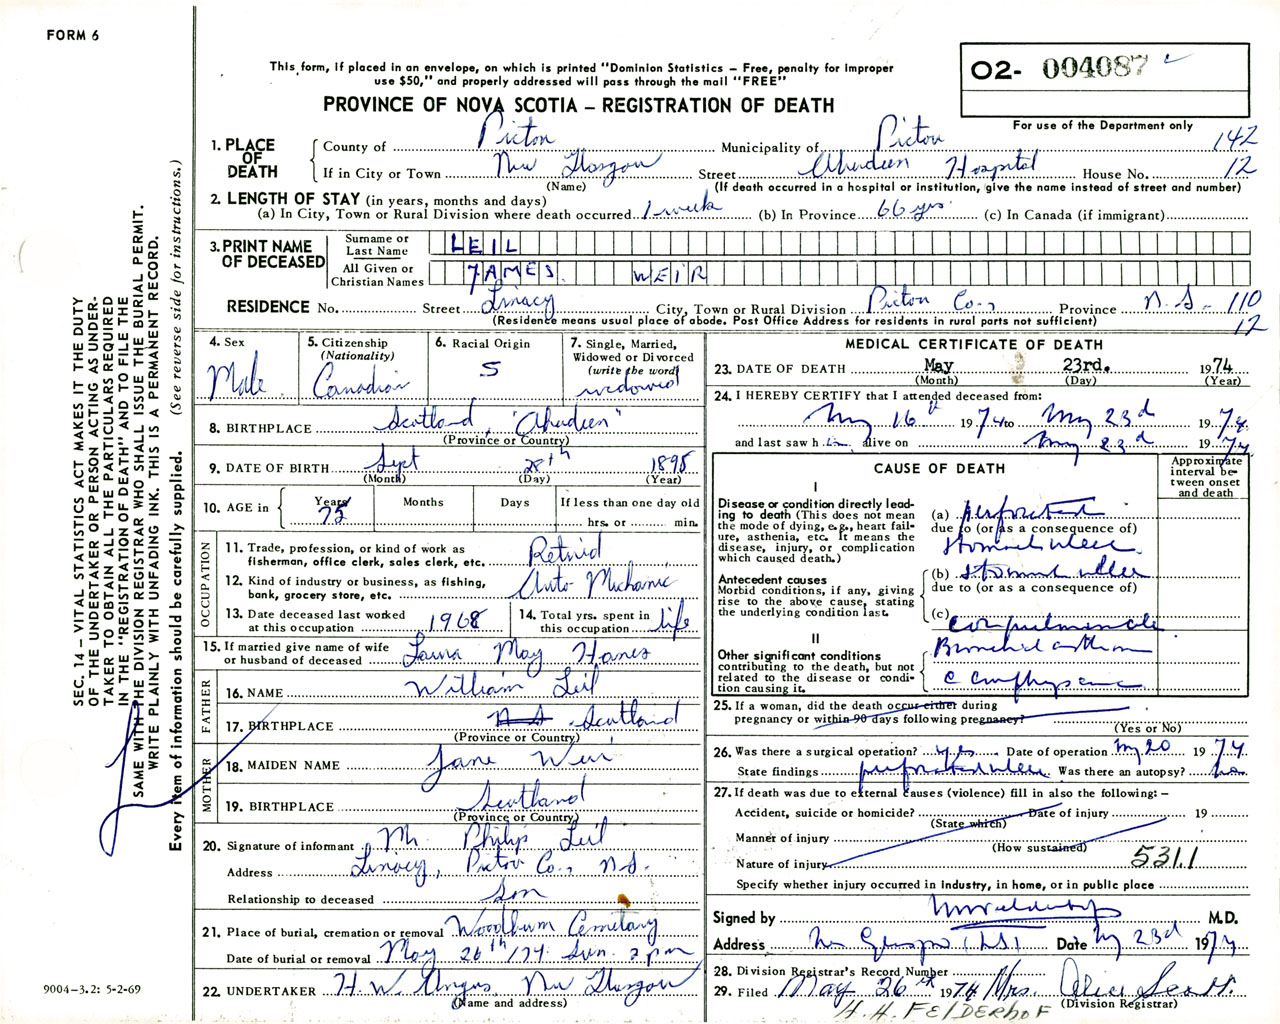 FORM 6
This form, if placed in an envelope, on which is printed "Dominion Statistics – Free, penalty for improper
use $50," and properly addressed will pass through the mail "FREE"
O2- 004087
PROVINCE OF NOVA SCOTIA – REGISTRATION OF DEATH
For use of the Department only
1. PLACE OF DEATH
County of Pictou Municipality of Pictou 142
If in City or Town New Glasgow Street Aberdeen Hospital House No. 12
(Name) (If death occurred in a hospital or institution, give the name instead of street and number)
2. LENGTH OF STAY (in years, months and days)
(a) In City, Town or Rural Division where death occurred 1 week (b) In Province 66 yrs. (c) In Canada (if immigrant)
3. PRINT NAME OF DECEASED
Surname or Last Name LEIL
All Given or Christian Names JAMES WEIR
RESIDENCE No. Street Linacy City, Town or Rural Division Pictou Co., Province N.S. 110
(Residence means usual place of abode. Post Office Address for residents in rural parts not sufficient) 12
4. Sex Male
5. Citizenship (Nationality) Canadian
6. Racial Origin S
7. Single, Married, Widowed or Divorced (write the word) widowed
8. BIRTHPLACE Scotland, "Aberdeen"
(Province or Country)
9. DATE OF BIRTH Sept 28th 1898
(Month) (Day) (Year)
10. AGE in Years 75 Months Days If less than one day old hrs. or min.
OCCUPATION
11. Trade, profession, or kind of work as fisherman, office clerk, sales clerk, etc. Retired
12. Kind of industry or business, as fishing, bank, grocery store, etc. Auto Mechanic
13. Date deceased last worked at this occupation 1968
14. Total yrs. spent in this occupation life
15. If married give name of wife or husband of deceased Laura May Hanes
FATHER
16. NAME William Leil
17. BIRTHPLACE N S Scotland
(Province or Country)
MOTHER
18. MAIDEN NAME Jane Weir
19. BIRTHPLACE Scotland
(Province or Country)
20. Signature of informant Mr. Philip Leil
Address Linacy, Pictou Co., N.S.
Relationship to deceased Son
21. Place of burial, cremation or removal Woodburn Cemetary
Date of burial or removal May 26th/74 Sun. 2 pm
22. UNDERTAKER H. W. Angus New Glasgow
(Name and address)
MEDICAL CERTIFICATE OF DEATH
23. DATE OF DEATH May 23rd. 1974
(Month) (Day) (Year)
24. I HEREBY CERTIFY that I attended deceased from:
My 16th 1974 to My 23d 1974
and last saw him alive on My 23d 1974
CAUSE OF DEATH
Approximate interval between onset and death
I
Disease or condition directly leading to death (This does not mean the mode of dying, e.g., heart failure, asthenia, etc. It means the disease, injury, or complication which caused death.)
(a) perforated
due to (or as a consequence of)
stomach ulcer
Antecedent causes
Morbid conditions, if any, giving rise to the above cause, stating the underlying condition last.
(b) stomach ulcer
due to (or as a consequence of)
(c) cor pulmonale
II
Other significant conditions contributing to the death, but not related to the disease or condition causing it.
Bronchial asthma
c emphysema
25. If a woman, did the death occur either during pregnancy or within 90 days following pregnancy?
(Yes or No)
26. Was there a surgical operation? yes Date of operation My 20 1974
State findings perforated ulcer Was there an autopsy? no
27. If death was due to external causes (violence) fill in also the following: –
Accident, suicide or homicide? Date of injury 19
(State which)
Manner of injury
(How sustained)
Nature of injury 531.1
Specify whether injury occurred in industry, in home, or in public place
Signed by M.D.
Address N Glasgow (NS) Date My 23d 1974
28. Division Registrar's Record Number
29. Filed May 26th 1974 Mrs. Alice Scott
(Division Registrar)
H. H. FELDERHOF
SEC. 14 – VITAL STATISTICS ACT MAKES IT THE DUTY
OF THE UNDERTAKER OR PERSON ACTING AS UNDER-
TAKER TO OBTAIN ALL THE PARTICULARS REQUIRED
IN THE "REGISTRATION OF DEATH" AND TO FILE THE
SAME WITH THE DIVISION REGISTRAR WHO SHALL ISSUE THE BURIAL PERMIT.
WRITE PLAINLY WITH UNFADING INK. THIS IS A PERMANENT RECORD.
Every item of information should be carefully supplied. (See reverse side for instructions.)
9004-3.2: 5-2-69